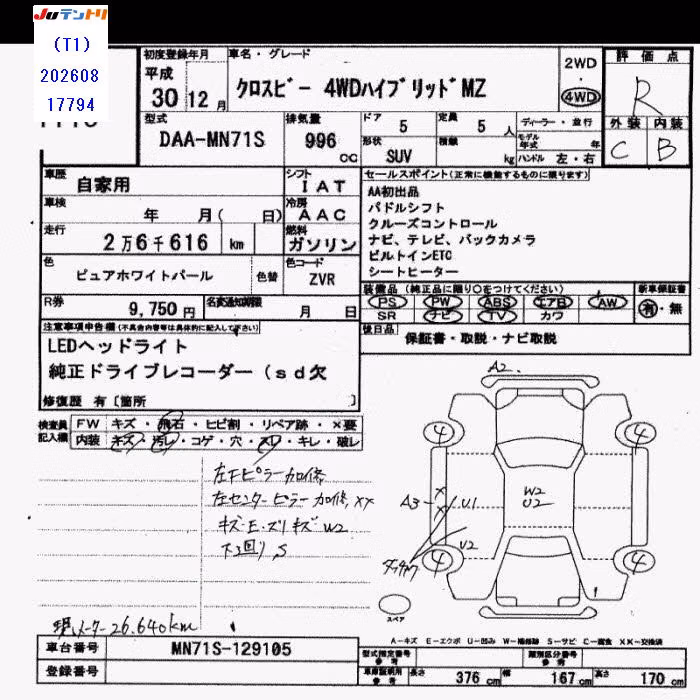 JUテントリ
(T1)
202608
17794
初度登録年月
平成
30 12月
車名・グレード
クロスビー 4WDハイブリッドMZ
2WD
・
4WD
評価点
R
外装 内装
C B
型式
DAA-MN71S
排気量
996
cc
ドア
5
定員
5 人
形状
SUV
積載
kg
ディーラー・並行
モデル年式 年
ハンドル 左・右
車歴
自家用
シフト
IAT
車検
年 月( 日)
冷房
AAC
走行
2万6千616 km
燃料
ガソリン
色
ピュアホワイトパール
色替
色コード
ZVR
R券
9,750円
名変通知期限
月 日
セールスポイント(正常に機能するものに限ります)
AA初出品
パドルシフト
クルーズコントロール
ナビ、テレビ、バックカメラ
ビルトインETC
シートヒーター
装備品(純正品に限り○をつけてください)
PS PW ABS エアB AW
SR ナビ TV カワ
新車保証書
有・無
後日品
保証書・取説・ナビ取説
注意事項申告欄(不具合内容等は具体的に記入して下さい)
LEDヘッドライト
純正ドライブレコーダー(sd欠
修復歴 有〔箇所 〕
検査員記入欄
FW キズ・飛石・ヒビ割・リペア跡・×要
内装 キズ・汚レ・コゲ・穴・スレ・キレ・破レ
左Fピラー加修
左センターピラー加修,XX
キズ・E・ズリキズ W2
下回り,S
現メーター26,640km
A2
4 4
A3 X X U1
W2
U2
U2
4 4
スペア
A-キズ E-エクボ U-凹み W-補修跡 S-サビ C-腐食 XX-交換済
車台番号
MN71S-129105
登録番号
型式指定番号
参考
類別区分番号
参考
車庫証明用
参考
長さ 376cm 幅 167cm 高さ 170cm